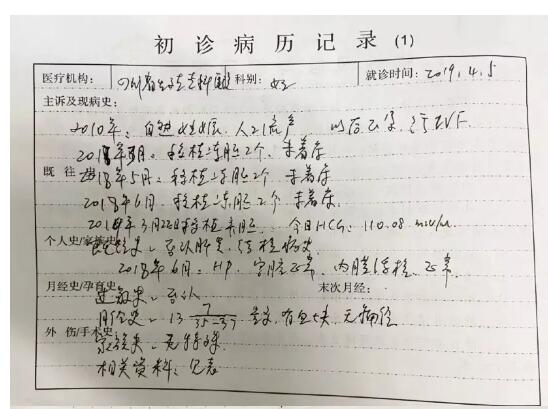 初诊病历记录(1)
医疗机构: 四川省生殖专科医院 科别: 妇 就诊时间: 2019.4.5
主诉及现病史:
2010年: 自然妊娠, 人工流产 以后不孕, 行IVF.
2018年 月. 移植冻胚2个. 未着床
既 往 2018年5月. 移植冻胚2个. 未着床
2018年6月. 移植冻胚2个 未着床.
2019年3月22日移植冻胚. 今日HCG: 110.08 miu/ml
个人史/家族史: 既往史: 否认肝炎, 结核病史
2018年6月: HP. 宫腔正常. 内膜活检. 正常
月经史/孕育史: 过敏史: 否认 末次月经:
月经史: 13 7/35-37 量 , 有血块, 无痛经
外 伤/手术史: 家族史: 无特殊.
相关资料: 见表